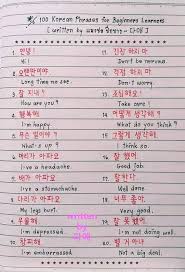 100 Korean Phrases for Beginners Learners
[ written by
1. 안녕!
Hi!
2. 오랜만이야!
Long time no see.
3. 잘 지내?
How are you?
4. 행복해
I'm happy
5. 무슨 일이야?
What's up?
6. 머리가 아파요
I have a headache.
7. 배가 아파요
I have a stomachache
8. 다리가 아파요
My legs hurt.
9.
I'm depressed.
10. 창피해
I'm embarrassed.
11. 긴장 하지 마
Don't be nervous.
12. 걱정 하지 마
Don't worry.
13. 조심해요!
Take care!
14. 어떻게 생각해?
What do you think?
15. 그렇게 생각해.
I think so.
16. 잘 했어
Good job.
17. 잘한다.
Well done.
18. 너무 좋아.
Very good.
19.
I'm not doing well.
20. 별 거 아냐
No big deal.
written
by